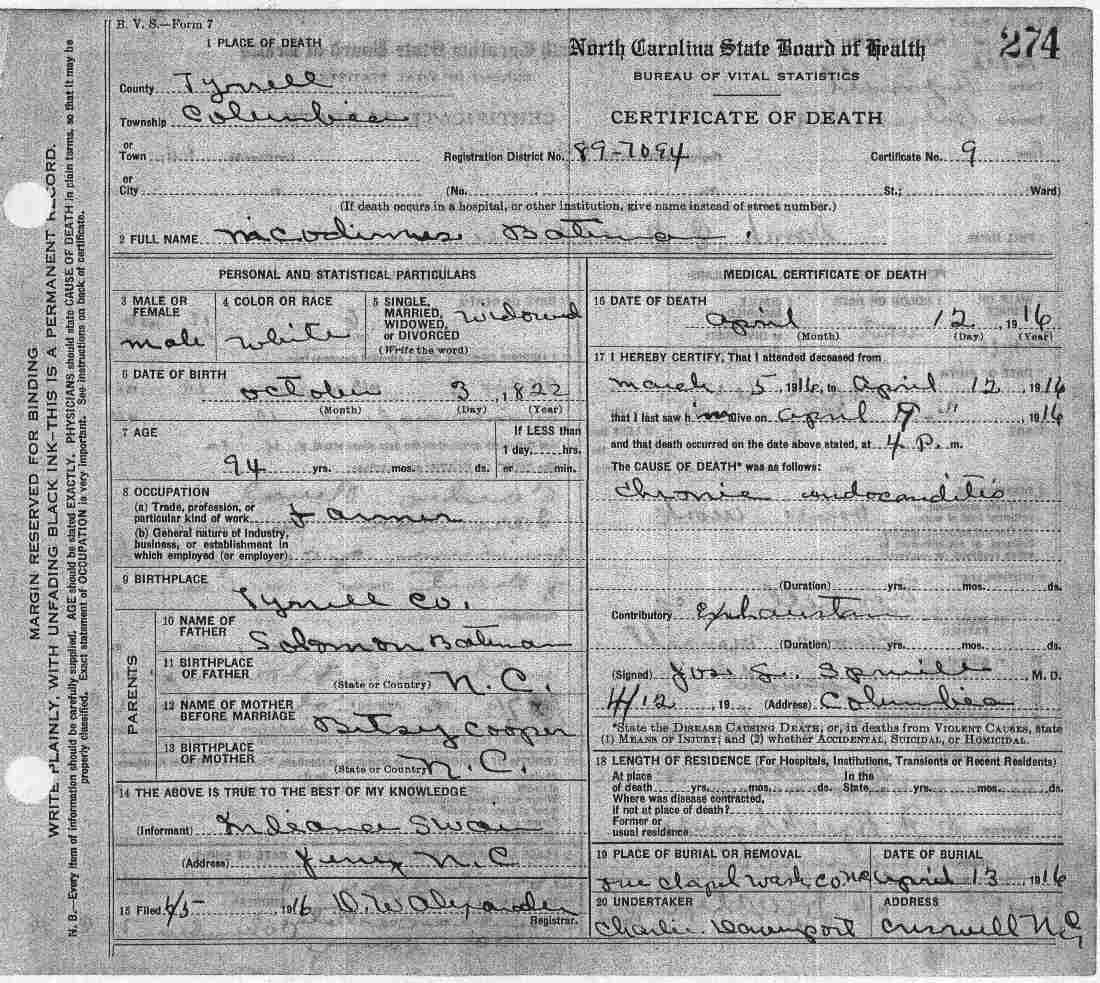 B. V. S.—Form 7
1 PLACE OF DEATH
North Carolina State Board of Health
274
BUREAU OF VITAL STATISTICS
County Tyrrell
CERTIFICATE OF DEATH
Township Columbia
or
Town
Registration District No. 89-7094
Certificate No. 9
or
City (No. St.; Ward)
(If death occurs in a hospital, or other institution, give name instead of street number.)
2 FULL NAME Bateman
PERSONAL AND STATISTICAL PARTICULARS
3 MALE OR FEMALE
male
4 COLOR OR RACE
White
5 SINGLE, MARRIED, WIDOWED, or DIVORCED
(Write the word)
Widowed
6 DATE OF BIRTH
October 3, 1822
(Month) (Day) (Year)
7 AGE
94 yrs. mos. ds.
If LESS than
1 day, hrs.
or min.
8 OCCUPATION
(a) Trade, profession, or
particular kind of work Farmer
(b) General nature of industry,
business, or establishment in
which employed (or employer)
9 BIRTHPLACE
Tyrrell Co.
PARENTS
10 NAME OF FATHER
Solomon Bateman
11 BIRTHPLACE OF FATHER
(State or Country) N.C.
12 NAME OF MOTHER BEFORE MARRIAGE
Betsy Cooper
13 BIRTHPLACE OF MOTHER
(State or Country) N.C.
14 THE ABOVE IS TRUE TO THE BEST OF MY KNOWLEDGE
(Informant) Swain
(Address) N.C
15 Filed 4/5 1916 D. W Alexander
Registrar.
MEDICAL CERTIFICATE OF DEATH
16 DATE OF DEATH
April 12, 1916
(Month) (Day) (Year)
17 I HEREBY CERTIFY, That I attended deceased from
March 5 1916, to April 12, 1916
that I last saw him alive on April 9, 1916
and that death occurred on the date above stated, at 4 P. m.
The CAUSE OF DEATH* was as follows:
Chronic endocarditis
(Duration) yrs. mos. ds.
Contributory Exhaustion
(Duration) yrs. mos. ds.
(Signed) Jos L. Spruill, M. D.
4/12, 19 (Address) Columbia
*State the DISEASE CAUSING DEATH; or, in deaths from VIOLENT CAUSES, state
(1) MEANS OF INJURY; and (2) whether ACCIDENTAL, SUICIDAL, or HOMICIDAL.
18 LENGTH OF RESIDENCE (For Hospitals, Institutions, Transients or Recent Residents)
At place of death yrs. mos. ds. In the State yrs. mos. ds.
Where was disease contracted,
if not at place of death?
Former or
usual residence
19 PLACE OF BURIAL OR REMOVAL
chapel Wash Co NC
DATE OF BURIAL
April 13, 1916
20 UNDERTAKER
Charlie Davenport
ADDRESS
Creswell N.C
MARGIN RESERVED FOR BINDING
WRITE PLAINLY, WITH UNFADING BLACK INK—THIS IS A PERMANENT RECORD.
N. B.—Every item of information should be carefully supplied. AGE should be stated EXACTLY. PHYSICIANS should state CAUSE OF DEATH in plain terms, so that it may be
properly classified. Exact statement of OCCUPATION is very important. See instructions on back of certificate.